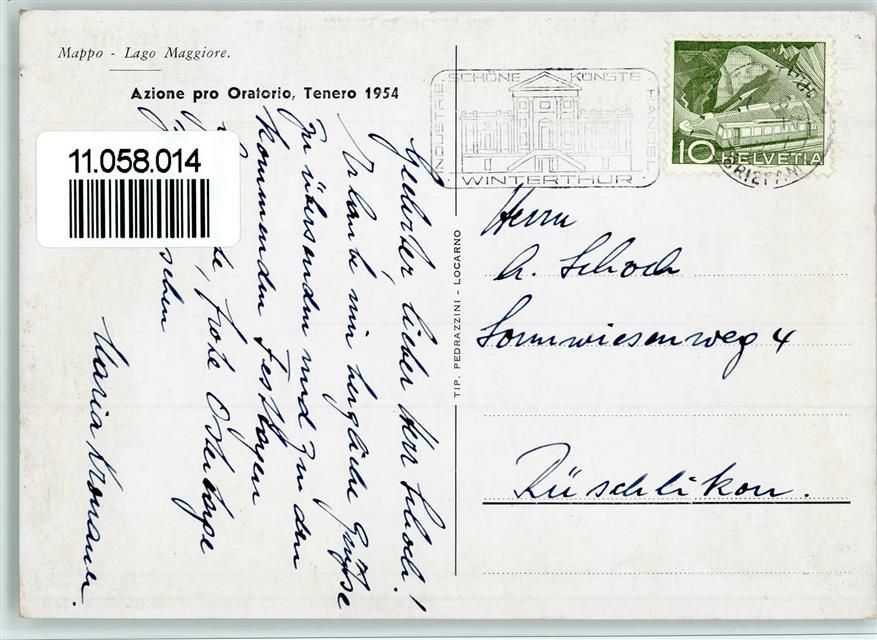 Mappo - Lago Maggiore.
Azione pro Oratorio, Tenero 1954
11.058.014
Geehrter, lieber Herr Schoch!
Erlaube mir herzliche Grüsse
zu übersenden und zu den
kommenden Festtagen
frohe Ostertage
Maria Kronauer.
TIP. PEDRAZZINI - LOCARNO
INDUSTRIE SCHÖNE KÜNSTE HANDEL
WINTERTHUR
10 HELVETIA
BRIEFAN
Herrn
A. Schoch
Sonnwiesenweg 4
Rüschlikon.